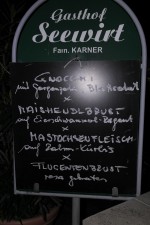 Gasthof
Seewirt
Fam. KARNER
GNOCCHI
mit Gorgonzola
x
MAISHENDLBRUST
auf Eierschwammerl-Ragout
x
MASTOCHSENFLEISCH
auf Rahm-Kürbis
x
FLUGENTENBRUST
rosa gebraten